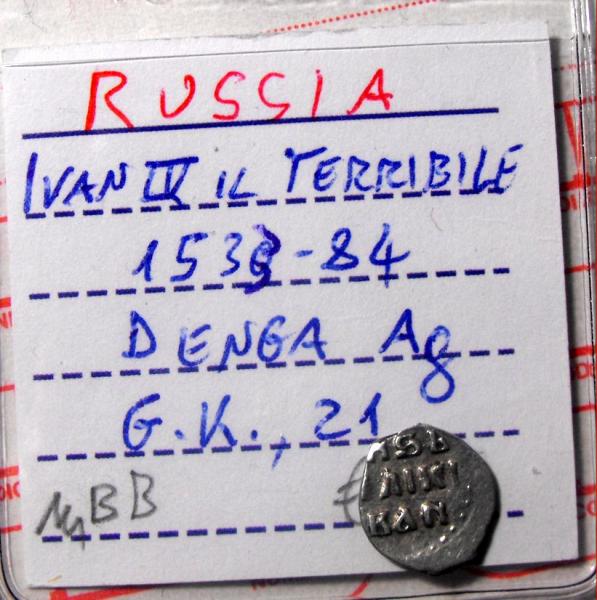 RUSSIA
IVAN IV IL TERRIBILE
1533-84
DENGA Ag
G.K., 21
BB